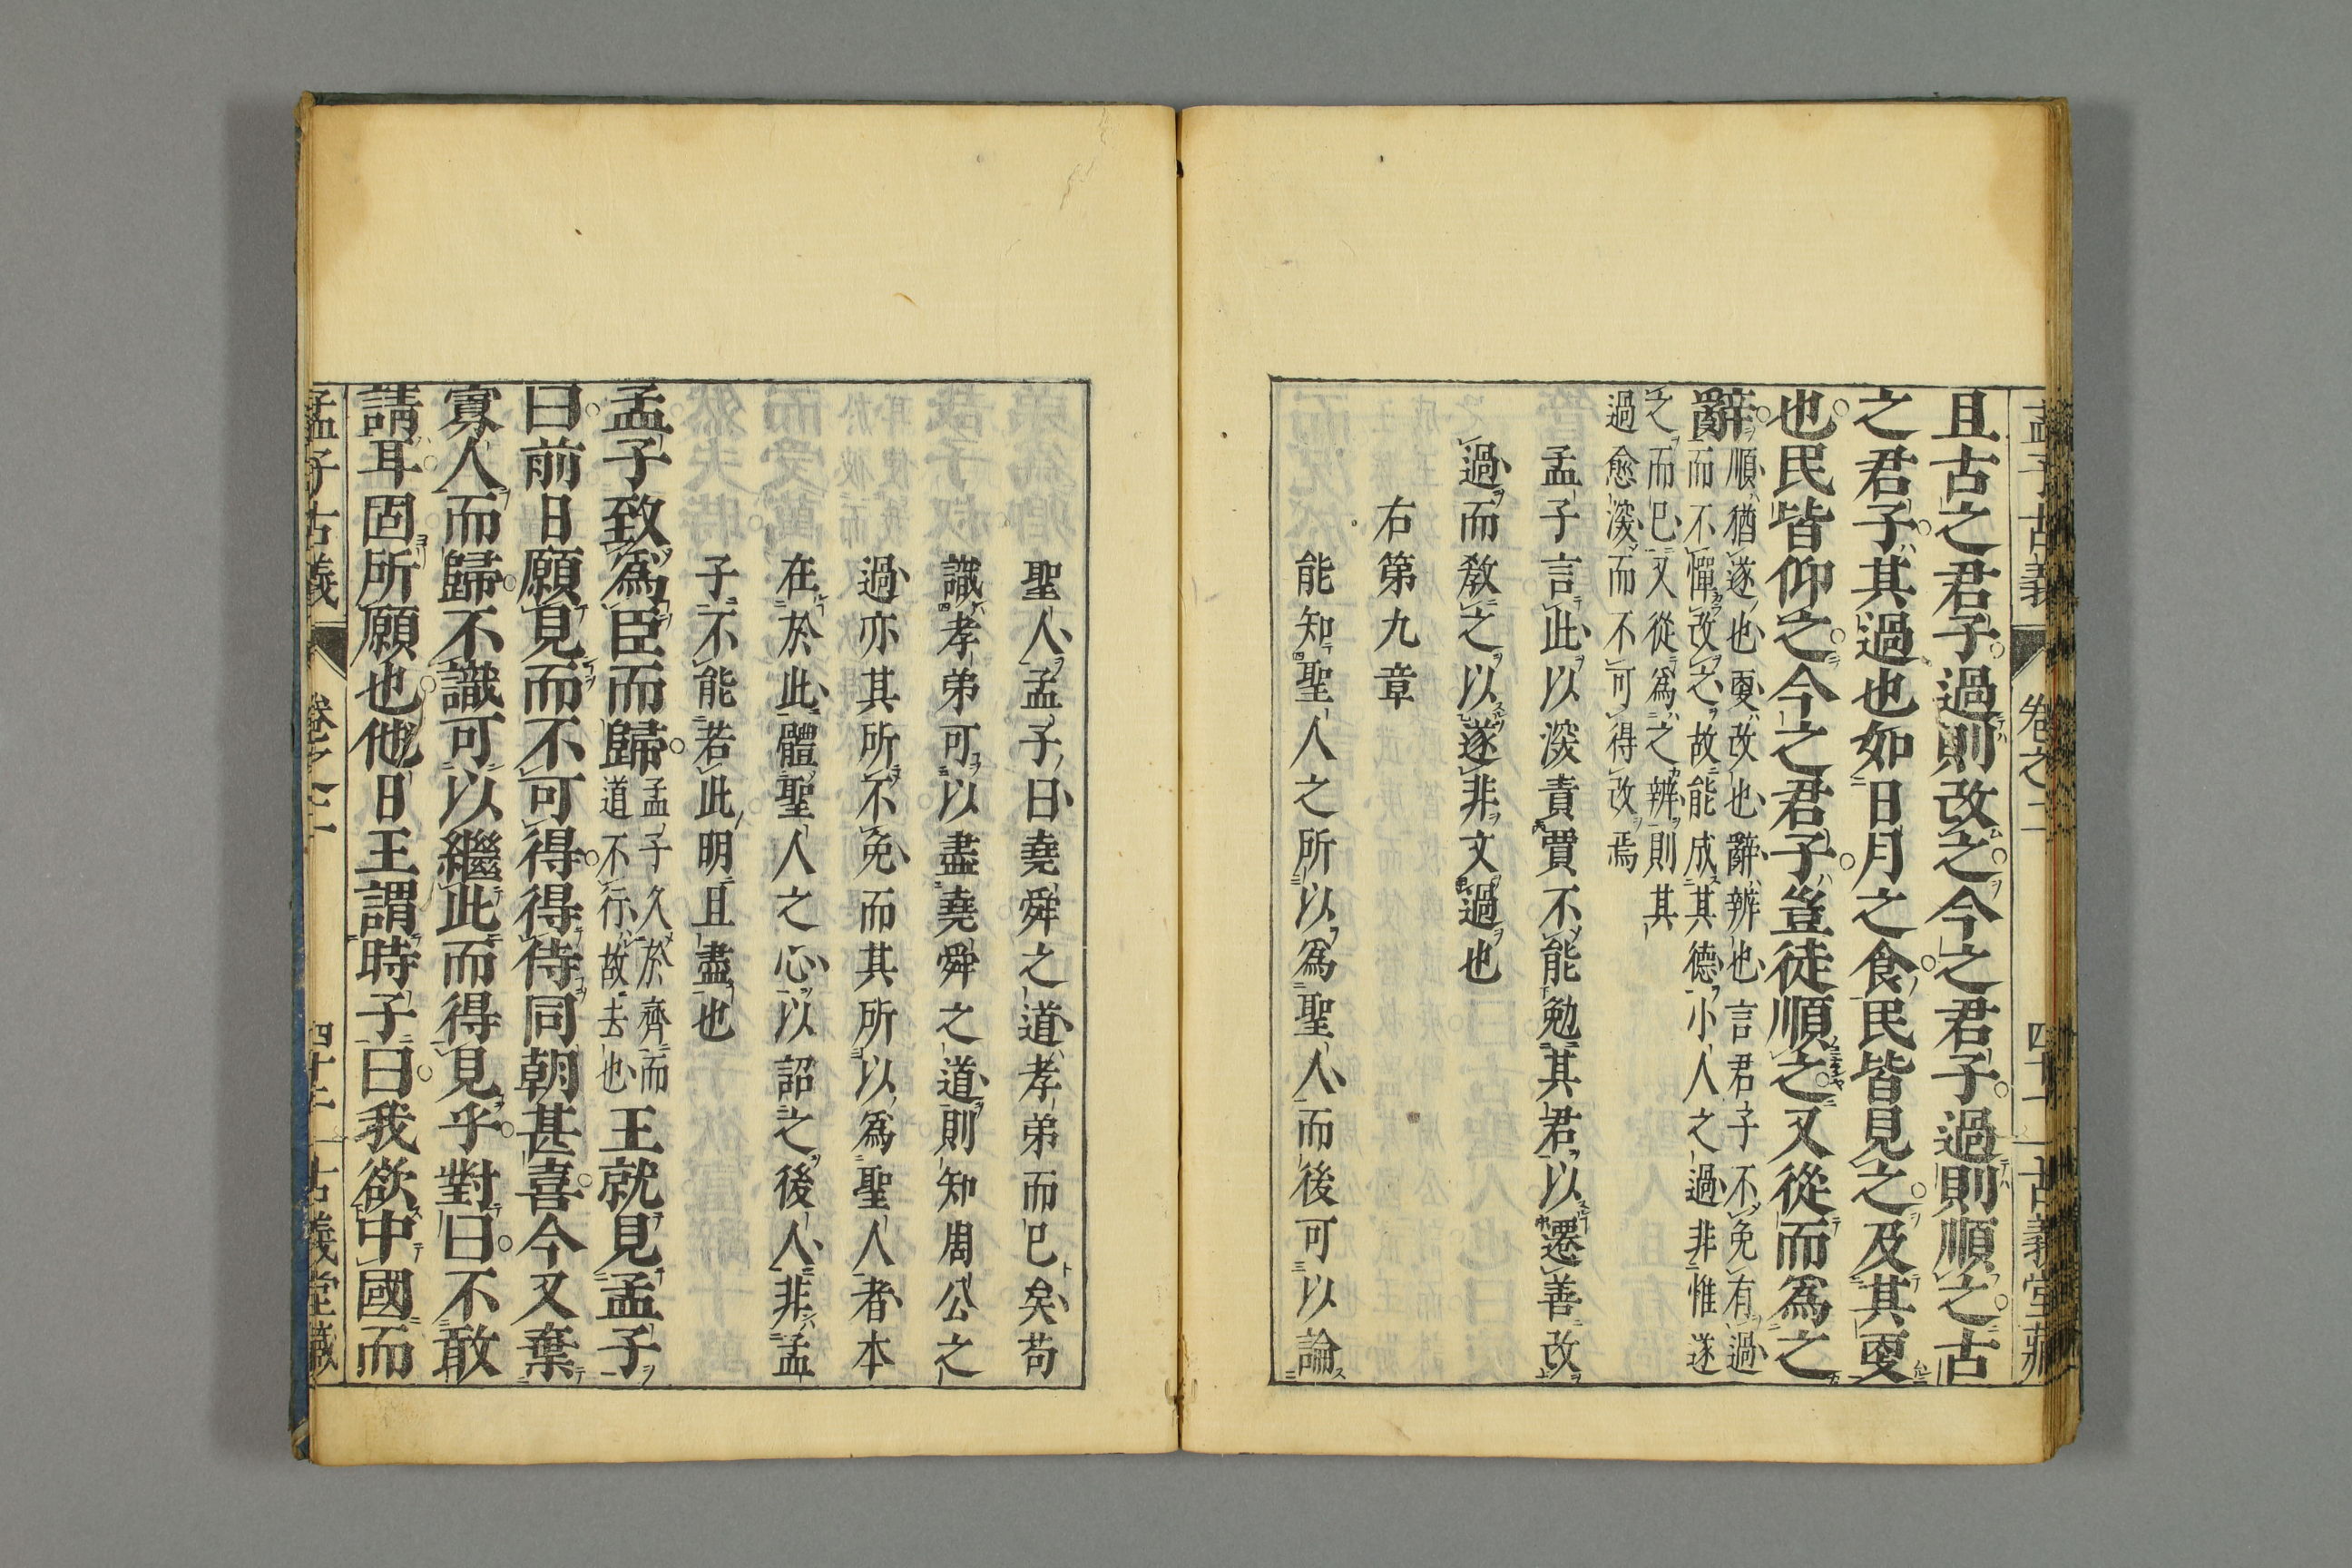 孟子古義 卷之二 四十一 古義堂藏
且古之君子過則改之今之君子過則順之古
之君子其過也如日月之食民皆見之及其更
也民皆仰之今之君子豈徒順之又從而爲之
辭順猶遂也更改也辭辨也言君子不免有過
而不憚改之故能成其德小人之過非惟遂
之而已又從爲之辨則其
過愈深而不可得改焉
孟子言此以深責賈不能勉其君以遷善改
過而敎之以遂非文過也
右第九章
能知聖人之所以爲聖人而後可以論
聖人孟子曰堯舜之道孝弟而已矣苟
識孝弟可以盡堯舜之道則知周公之
過亦其所不免而其所以爲聖人者本
在於此體聖人之心以詔之後人非孟
子不能若此明且盡也
孟子致爲臣而歸孟子久於齊而
道不行故去也王就見孟子
曰前日願見而不可得得侍同朝甚喜今又棄
寡人而歸不識可以繼此而得見乎對曰不敢
請耳固所願也他日王謂時子曰我欲中國而
孟子古義 卷之二 四十二 古義堂藏